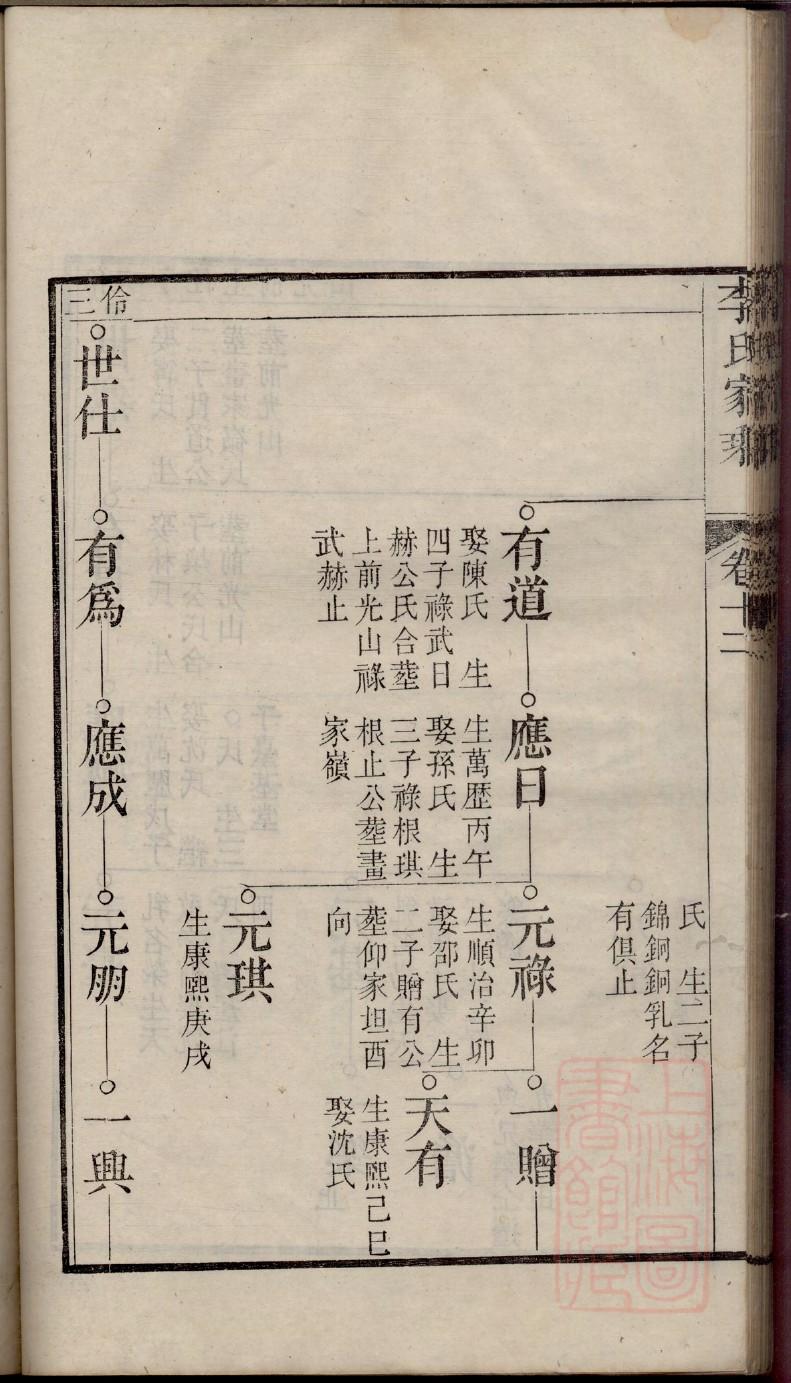 李氏家乘
卷十二
氏　生二子
錦銅銅乳名
有俱止
有道
娶陳氏　生
四子祿武日
赫公氏合塟
上前光山祿
武赫止
應日
生萬歷丙午
娶孫氏　生
三子祿根琪
根止公塟畫
家嶺
元祿
生順治辛卯
娶邵氏　生
二子贈有公
塟仰家坦酉
向
一贈
天有
生康熙己巳
娶沈氏
元琪
生康熙庚戌
伶三
世仕
有爲
應成
元朋
一興
上海圖書館藏